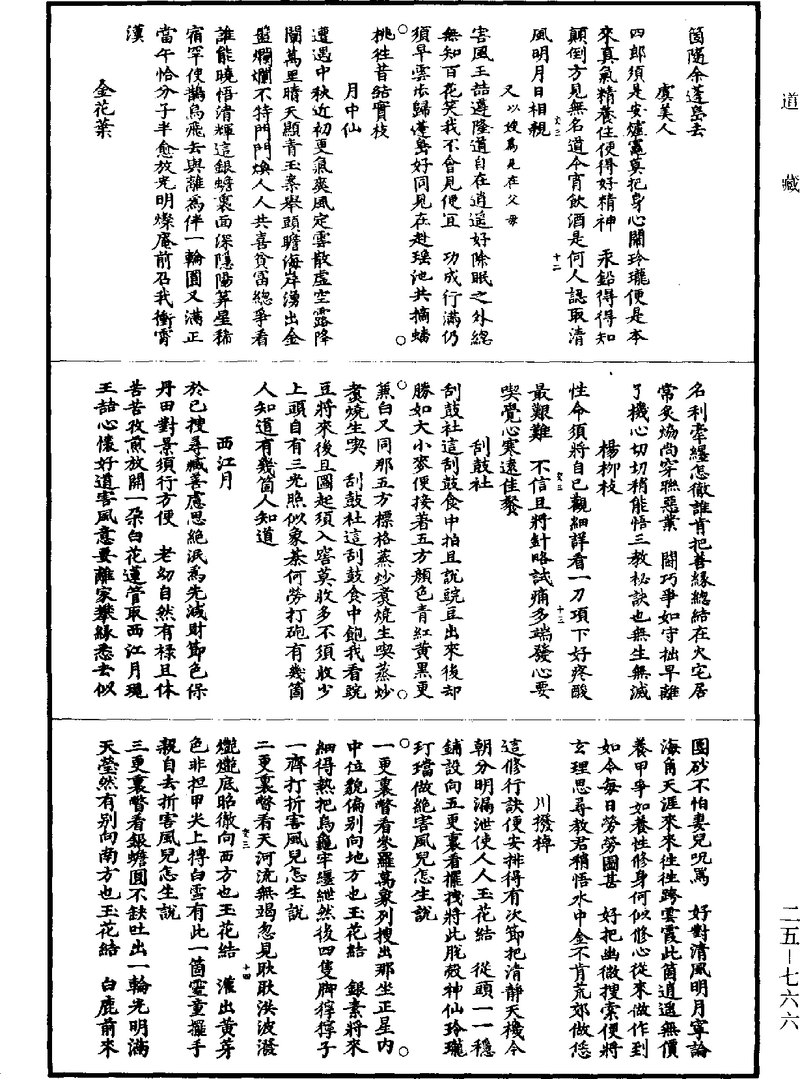 道藏
箇隨余蓬島去
虞美人
四郎須是安爐竈莫把身心鬧玲瓏便是本
來真氣精養住便得好精神　汞鉛得得知
顛倒方見無名道今宵飲酒是何人認取清
風明月日相親
又以嫂爲見在父母
害風王喆遵隆道自在逍遥好除眠之外總
無知百花笑我不會見便宜　功成行滿仍
須早雲步歸蓬島好同見在赴瑶池共摘蟠
桃往昔結實枝
月中仙
遭遇中秋近初更氣爽風定雲散虚空露降
闌萬里晴天顯青玉案舉頭瞻海岸湧出金
盤爛爛不特門門煥人人共喜貧富總爭看
誰能曉悟清輝這銀蟾裏面深隱陽算星稀
宿罕使鵲烏飛去與離爲伴一輪圓又滿正
當午恰分子半愈放光明燦庵前召我衝霄
漢
金花葉
名利牽纏怎徹誰肯把善緣總結在火宅居
常炙煿尚穿聯惡業　鬭巧爭如守拙早離
了機心切切稍能悟三教秘訣也無生無滅
楊柳枝
性命須將自已觀細詳看一刀項下好疼酸
最艱難　不信且將針略試痛多端發心要
喫覺心寒遠佳餐
刮鼓社
刮鼓社這刮鼓食中拍且説豌豆出來後却
勝如大小麥便接著五方顔色青紅黄黑更
兼白又同那五方標格蒸炒煑燒生喫蒸炒
煑燒生喫　刮鼓社這刮鼓食中飽我看豌
豆將來後且圖起須入窖莫收多不須收少
上頭自有三光照似象棊何勞打砲有幾箇
人知道有幾箇人知道
西江月
於已搜尋臧善慮思絶泯爲先減財節色保
丹田對景須行方便　老幼自然有禄且休
苦苦牧煎放開一朶白花蓮管取西江月現
王喆心懷好道害風意要離家攀緣悉去似
團砂不怕妻兒咒罵　好對清風明月寧論
海角天涯來來往往跨雲霞此箇逍遥無價
養甲爭如養性修身何似修心從來做作到
如今每日勞勞圖甚　好把幽微搜索便將
玄理思尋教君稍悟水中金不肯荒郊做恁
川撥棹
這修行訣便安排得有次節把清靜天機今
朝分明漏泄使人人玉花結　從頭一一穩
鋪設向五更裏看擺拽將此脱殼神仙玲瓏
玎璫做絶害風兒怎生説
一更裏瞥看參羅萬象列搜出那坐正星内
中位貌偏別向地方也玉花結　銀素將來
細得熱把烏龜牢纏紲然後四隻脚獰獰子
一齊打折害風兒怎生説
二更裏瞥看天河流無竭忽見耿耿洪波潑
灔灔底昭徹向西方也玉花結　灌出黄芽
色非担甲尖上摶白雪有此一箇靈童擺手
親自去折害風兒怎生説
三更裏瞥看銀蟾圓不缺吐出一輪光明滿
天瑩然有別向南方也玉花結　白鹿前來
二五—七六六